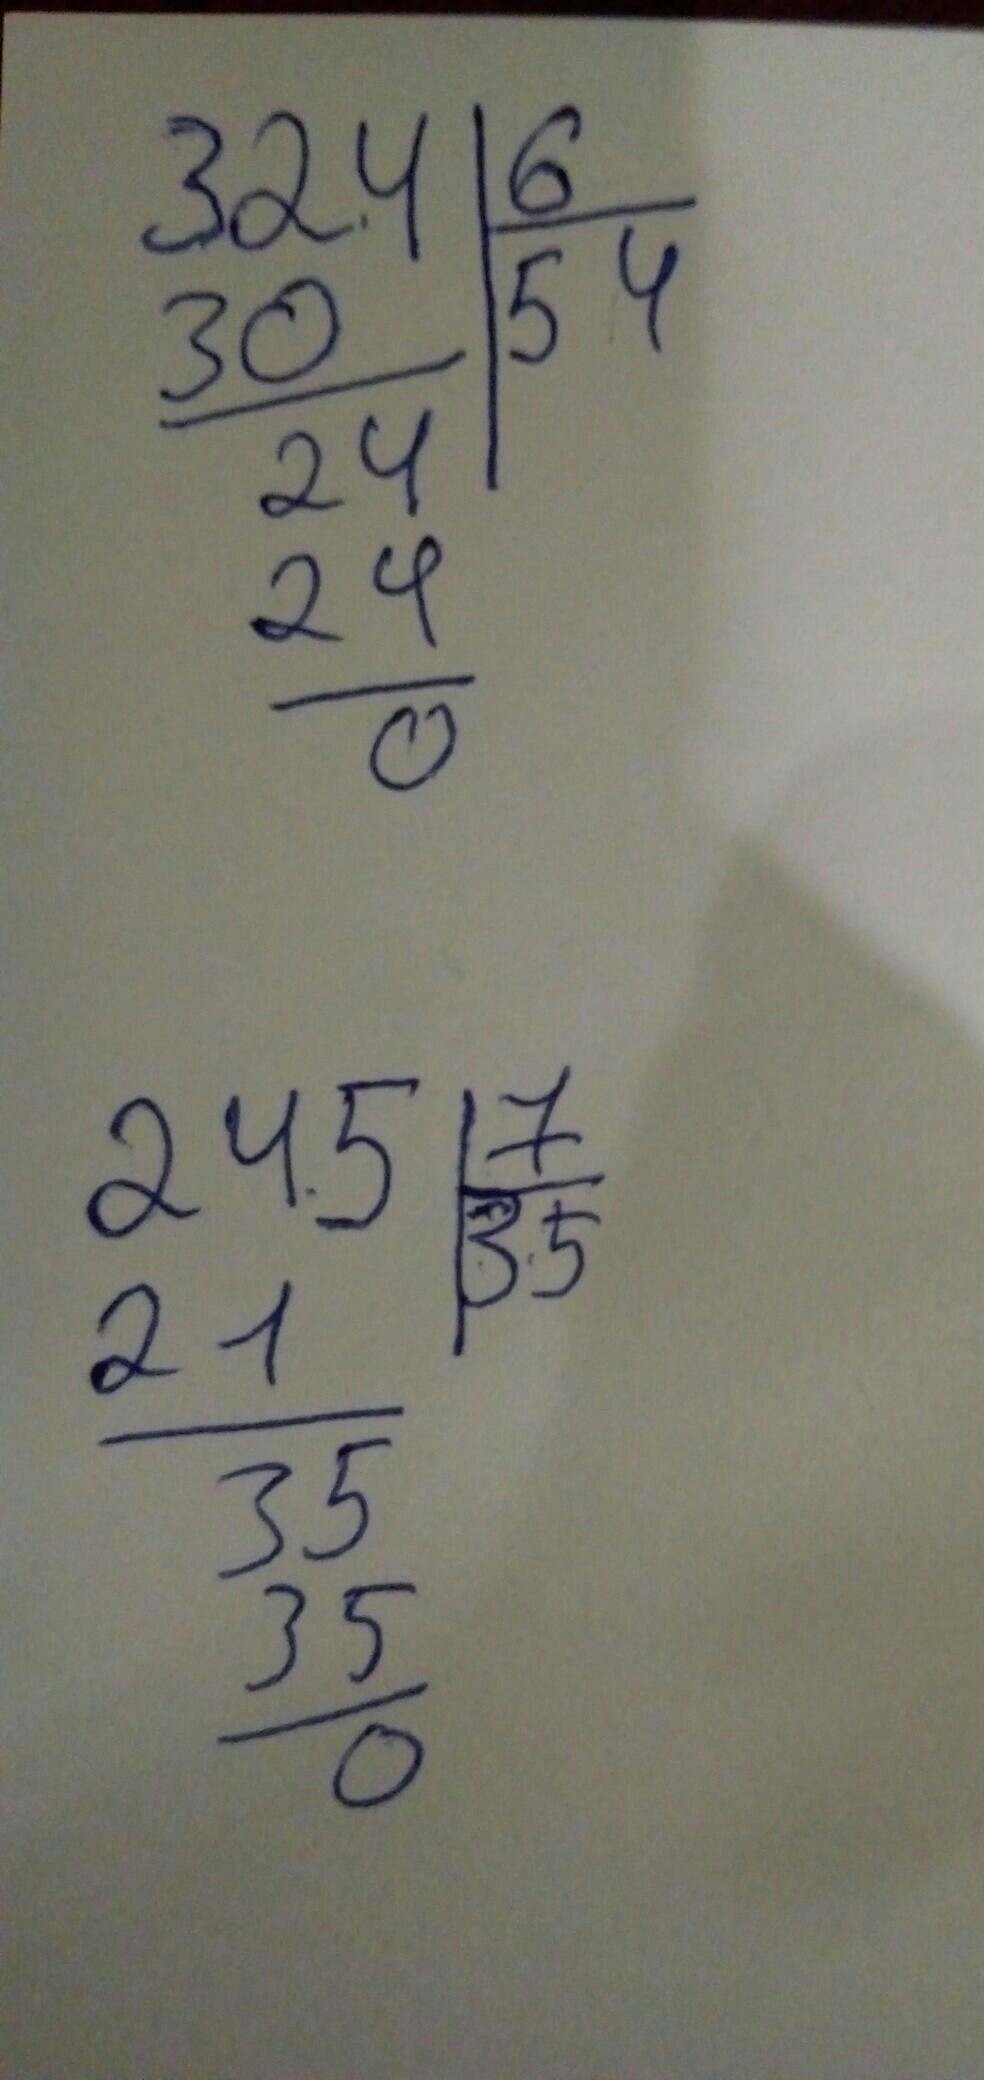 32.4 6
30 54
24
24
0
24.5 7
21 3.5
35
35
0